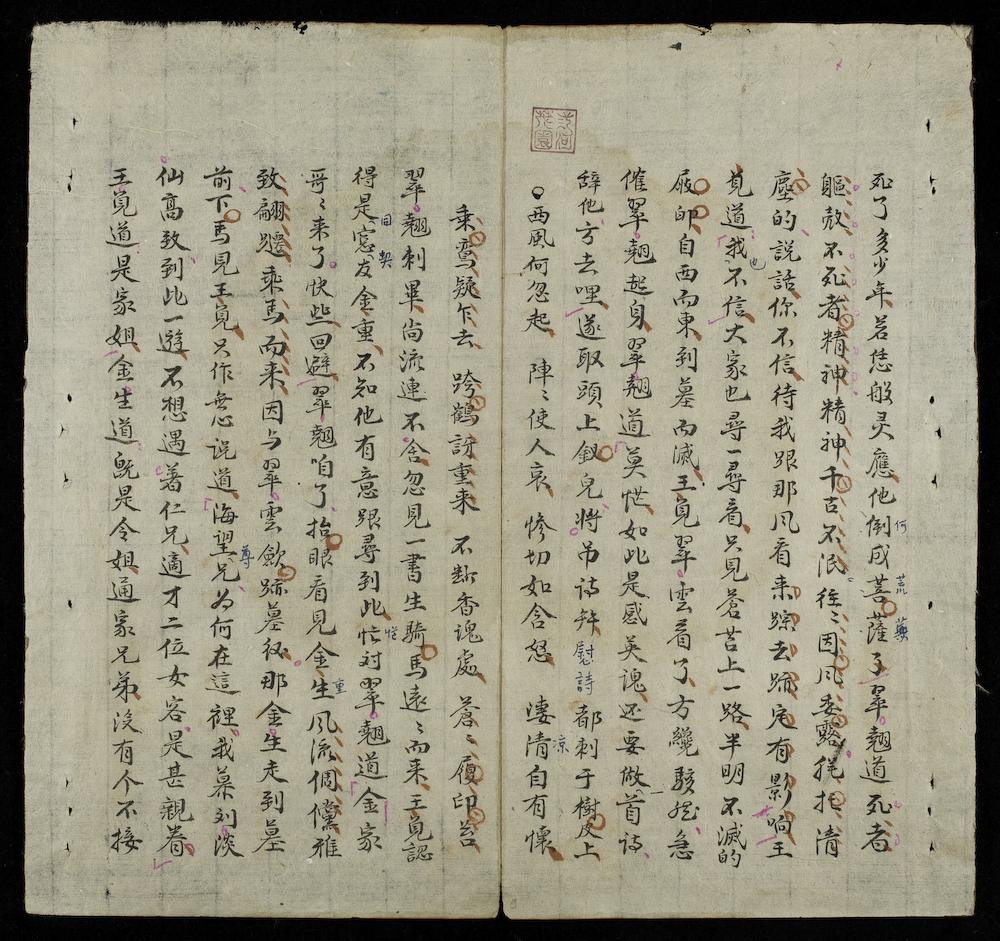 死了多少年若恁般灵應他倒成菩薩了翠翹道死者
軀殼不死者精神精神千古不泯往〻因风委露托清
塵的說話你不信待我跟那风看来踪去跡定有影响王
覓道我不信大家也尋一尋看只見蒼苔上一路半明不滅的
屐印自西而東到墓而滅王覓翠雲看了方纔駭然急
催翠翹起身翠翹道莫怪如此是感英魂还要做首诗
辞他方去哩遂取頭上釵兒将吊诗并慰詩都刺于樹皮上
西風何忽起 陣〻使人哀 惨切如含怒 凄清自有懷
乘鸞疑乍去 跨鶴訝重来 不断香魂處 蒼〻履印苔
翠翹刺畢尚流連不舍忽見一書生騎馬遠〻而来王覓認
得是窓友金重不知他有意跟尋到此忙対翠翹道金家
哥〻来了快些回避翠翹咱了抬眼看見金生风流倜儻雅
致翩躚乘馬而来因与翠雲歛跡墓後那金生走到墓
前下馬見王覓只作無心说道海望兄为何在這裡我慕刘淡
仙高致到此一遊不想遇着仁兄適才二位女客是甚親眷
王覓道是家姐金生道既是令姐通家兄弟没有个不接
何
荒
藥
也
凉
同
契
恾
重
尊